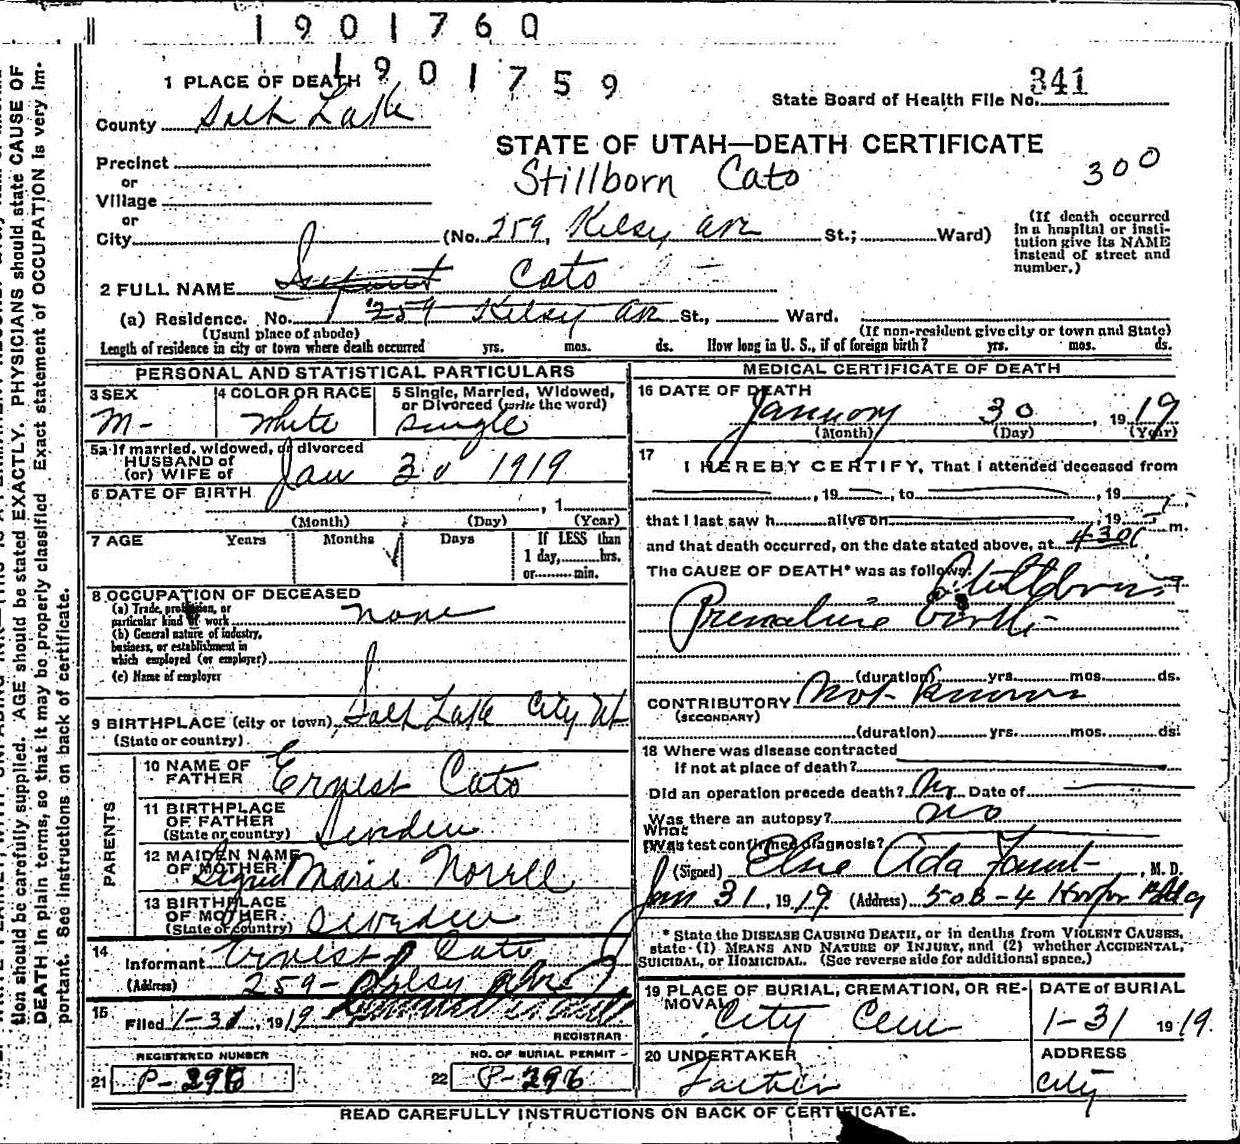 1901760
1901759
1 PLACE OF DEATH
341
State Board of Health File No.
County Salt Lake
STATE OF UTAH—DEATH CERTIFICATE
Precinct
Stillborn Cato
300
or
Village
or
City (No. 259, Kelsy Ave St.; Ward)
(If death occurred
in a hospital or insti-
tution give its NAME
instead of street and
number.)
2 FULL NAME Cato
(a) Residence. No. 259 Kelsy Ave St., Ward.
(Usual place of abode) (If non-resident give city or town and State)
Length of residence in city or town where death occurred yrs. mos. ds. How long in U. S., if of foreign birth? yrs. mos. ds.
PERSONAL AND STATISTICAL PARTICULARS
3 SEX 4 COLOR OR RACE 5 Single, Married, Widowed,
or Divorced (write the word)
M- White Single
5a If married, widowed, or divorced
HUSBAND of
(or) WIFE of
Jan 30 1919
6 DATE OF BIRTH , 1
(Month) (Day) (Year)
7 AGE Years Months Days If LESS than
1 day, hrs.
or min.
8 OCCUPATION OF DECEASED
(a) Trade, profession, or
particular kind of work none
(b) General nature of industry,
business, or establishment in
which employed (or employer)
(c) Name of employer
9 BIRTHPLACE (city or town) Salt Lake City Ut
(State or country)
PARENTS
10 NAME OF
FATHER Ernest Cato
11 BIRTHPLACE
OF FATHER
(State or country) Sweden
12 MAIDEN NAME
OF MOTHER Signed Marie Norell
13 BIRTHPLACE
OF MOTHER
(State or country) Sweden
14
Informant Ernest Cato
(Address) 259- Kelsy Ave
15
Filed 1-31, 1919
REGISTRAR
REGISTERED NUMBER NO. OF BURIAL PERMIT
21 P-296 22 P-296
MEDICAL CERTIFICATE OF DEATH
16 DATE OF DEATH
January 30 1919
(Month) (Day) (Year)
17
I HEREBY CERTIFY, That I attended deceased from
, 19 , to , 19
that I last saw h alive on , 19
and that death occurred, on the date stated above, at 430 m.
The CAUSE OF DEATH* was as follows:
Stillborn
Premature birth
(duration) yrs. mos. ds.
CONTRIBUTORY not known
(SECONDARY)
(duration) yrs. mos. ds.
18 Where was disease contracted
if not at place of death?
Did an operation precede death? No Date of
Was there an autopsy? no
What
test confirmed diagnosis?
(Signed) Elsie Ada Faust, M. D.
Jan 31, 1919 (Address) 508-4 Hooper Bldg
* State the DISEASE CAUSING DEATH, or in deaths from VIOLENT CAUSES,
state (1) MEANS AND NATURE OF INJURY, and (2) whether ACCIDENTAL,
SUICIDAL, or HOMICIDAL. (See reverse side for additional space.)
19 PLACE OF BURIAL, CREMATION, OR RE-
MOVAL
City Cem
DATE of BURIAL
1-31 1919.
20 UNDERTAKER
Father
ADDRESS
City
READ CAREFULLY INSTRUCTIONS ON BACK OF CERTIFICATE.
tion should be carefully supplied. AGE should be stated EXACTLY. PHYSICIANS should state CAUSE OF
DEATH in plain terms, so that it may be properly classified. Exact statement of OCCUPATION is very im-
portant. See instructions on back of certificate.